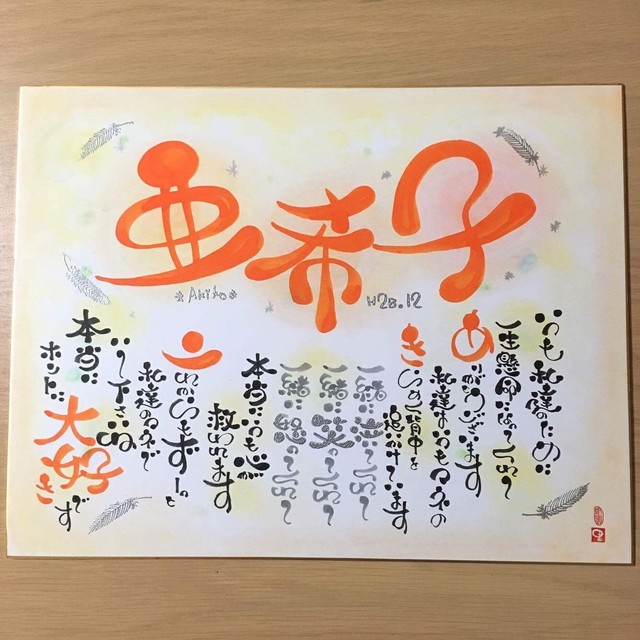 亜希子
*Akiko*
H28.12
いつも私達のために
一生懸命になってくれて
ありがとうございます
私達はいつもアネの
きらめく背中を
追いかけています
一緒に泣いてくれて
一緒に笑ってくれて
一緒に怒ってくれて
本当にいつも心が
救われてます
これからもずーっと
私達のアネで
いて下さいね
本当に
ホントに
大好きです